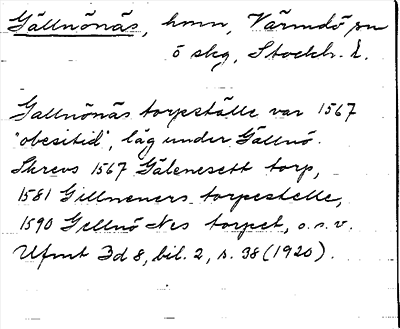 Gällnönäs, hmn, Värmdö sn
ö skg, Stockh. l.
Gällnönäs torpställe var 1567
"obesitid", låg under Gällnö.
Skrevs 1567 Gälenesett torp,
1581 Gillneners torpestelle,
1590 Gellnö Nes torpet, o.s.v.
Ufmt Bd 8, bil. 2, s. 38 (1920).